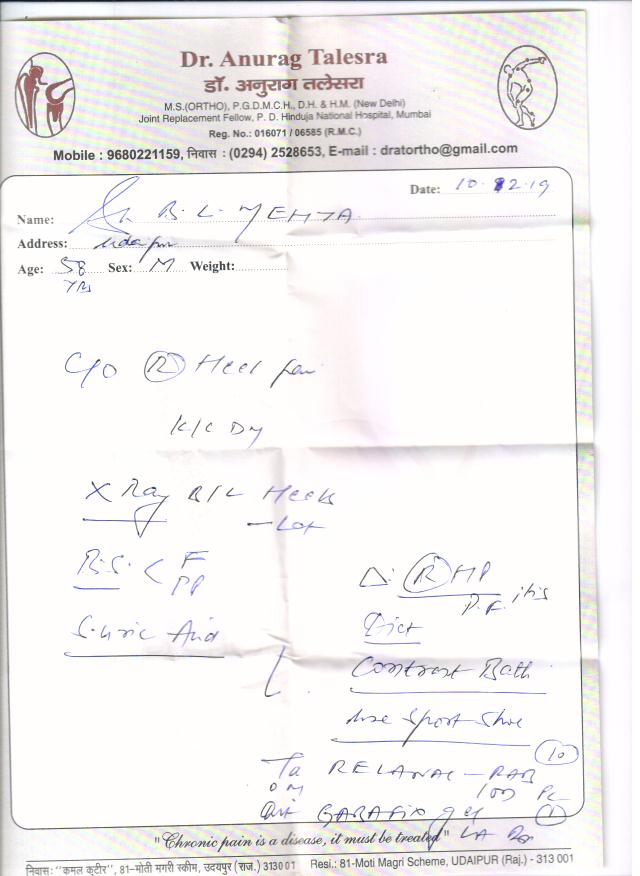 Dr. Anurag Talesra
डॉ. अनुराग तलेसरा
M.S.(ORTHO), P.G.D.M.C.H., D.H. & H.M. (New Delhi)
Joint Replacement Fellow, P. D. Hinduja National Hospital, Mumbai
Reg. No.: 016071 / 06585 (R.M.C.)
Mobile : 9680221159, निवास : (0294) 2528653, E-mail : dratortho@gmail.com
Date: 10.12.19
Name: B. L. MEHTA
Address: Udaipur
Age: 58 Sex: M Weight:
yrs
C/o (R) Heel pain
K/C DM
X Ray B/L Heels
- Lat
B.S. < F
PP
Δ: (R) HP
P.F. itis
S. Uric Acid
Diet
Contrast Bath
Use Sport Shoe
RELANAC - RAB (10)
100
GABAFIX gel (1)
LA
"Chronic pain is a disease, it must be treated"
निवास: "कमल कुटीर", 81-मोती मगरी स्कीम, उदयपुर (राज.) 313001 Resi.: 81-Moti Magri Scheme, UDAIPUR (Raj.) - 313 001